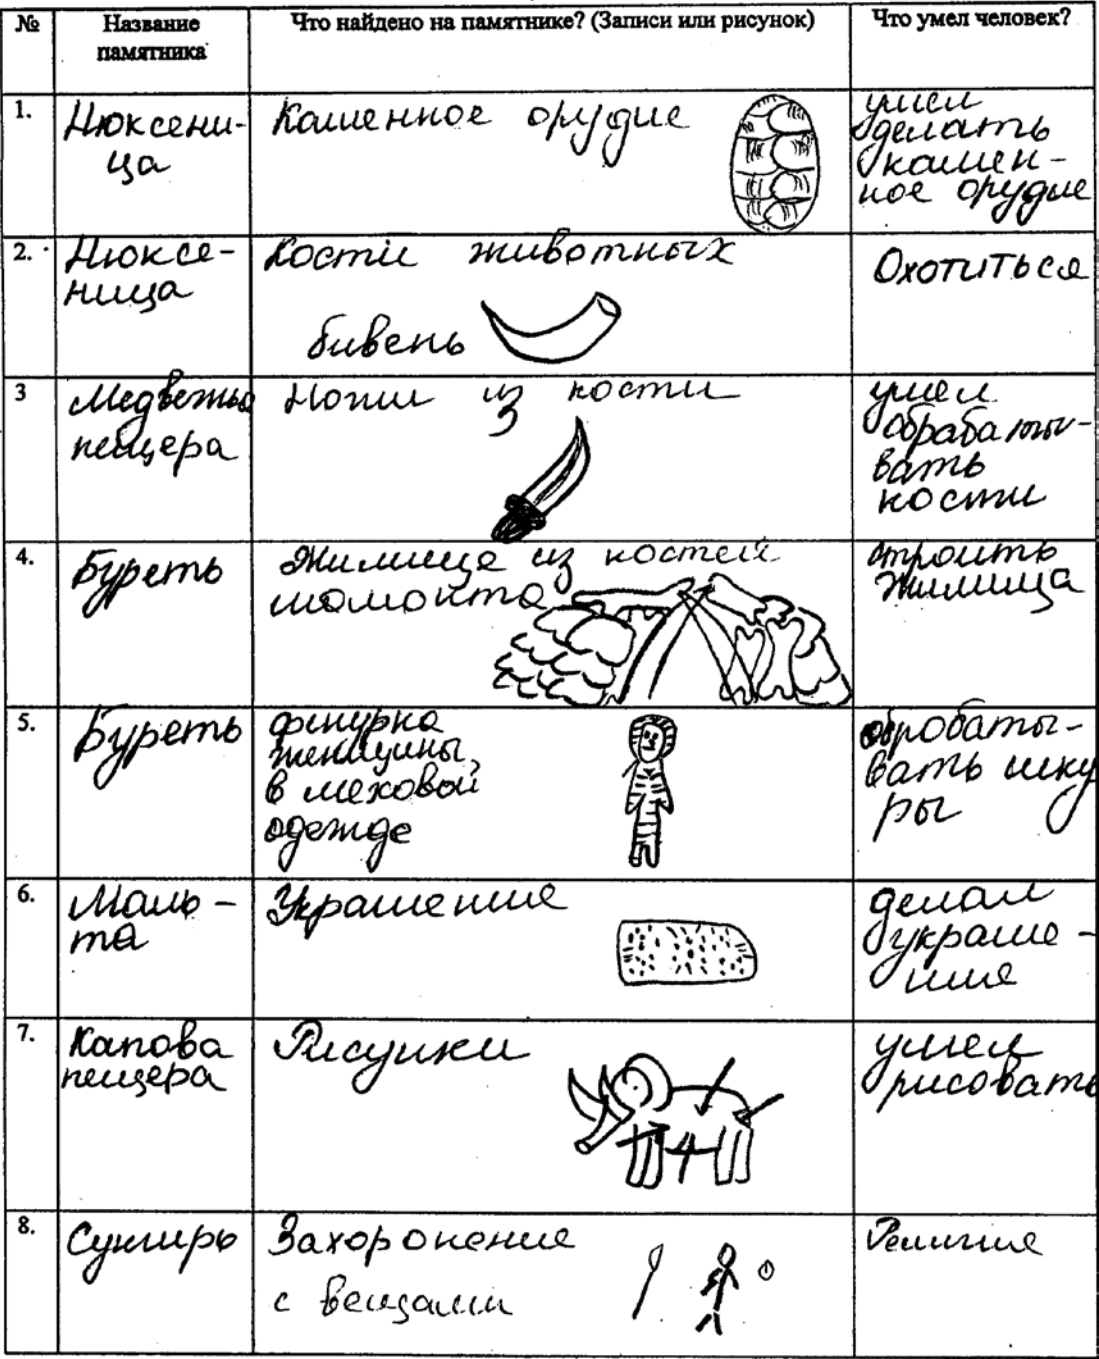 № Название памятника Что найдено на памятнике? (Записи или рисунок) Что умел человек?
1. Нюксени-
ца
Каменное орудие
умел
делать
камен-
ное орудие
2. Нюксе-
ница
Кости животных
бивень
Охотиться
3 Медвежья
пещера
Ножи из кости
умел
обрабаты-
вать
кости
4. Буреть
Жилище из костей
мамонта
строить
жилища
5. Буреть
фигурка
женщины
в меховой
одежде
обробаты-
вать шку
ры
6. Маль-
та
Украшение
делал
украше-
ние
7. Капова
пещера
Рисунки
умел
рисовать
8. Сунгирь
Захоронение
с вещами
Религие